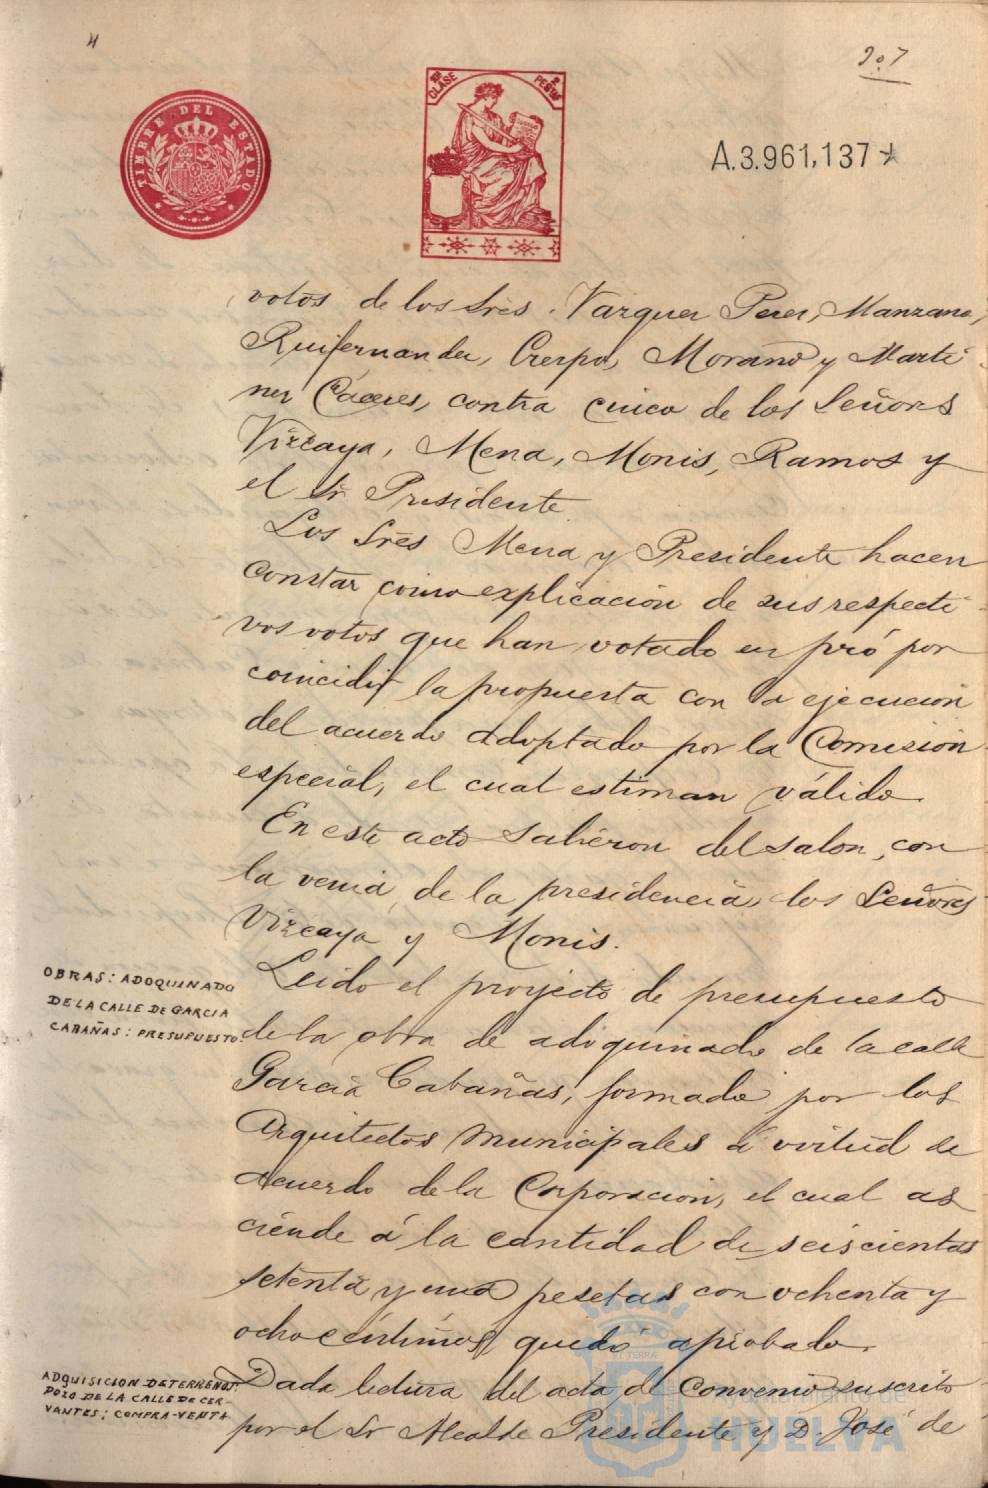 4
207
TIMBRE DEL ESTADO
CLASE
PESTAS
A.3.961,137*
votos de los Sres. Vazquez Perez, Manzano,
Ruifernandez, Crespo, Morano y Marti-
nez Cáceres, contra cinco de los Señores
Vizcaya, Mena, Monis, Ramos y
el Sr. Presidente
Los Sres Mena y Presidente hacen
constar como explicación de sus respecti-
vos votos que han votado en pró por
coincidir la propuesta con la ejecución
del acuerdo adoptado por la Comisión
especial, el cual estiman válido.
En este acto salieron del salon, con
la venia de la presidencia, los Señores
Vizcaya y Monis.
OBRAS: ADOQUINADO
DE LA CALLE DE GARCIA
CABAÑAS: PRESUPUESTO.
Leido el proyecto de presupuesto
de la obra de adoquinado de la calle
Garcia Cabañas, formado por los
Arquitectos Municipales á virtud de
acuerdo de la Corporación, el cual as
ciende á la cantidad de seiscientas
setenta y una pesetas con ochenta y
ocho céntimos, quedó aprobado.
ADQUISICION DE TERRENOS:
POZO DE LA CALLE DE CER-
VANTES; COMPRA-VENTA
Dada lectura del acta de convenio suscrito
por el Sr Alcalde Presidente y D. José de
Ayuntamiento de
HUELVA